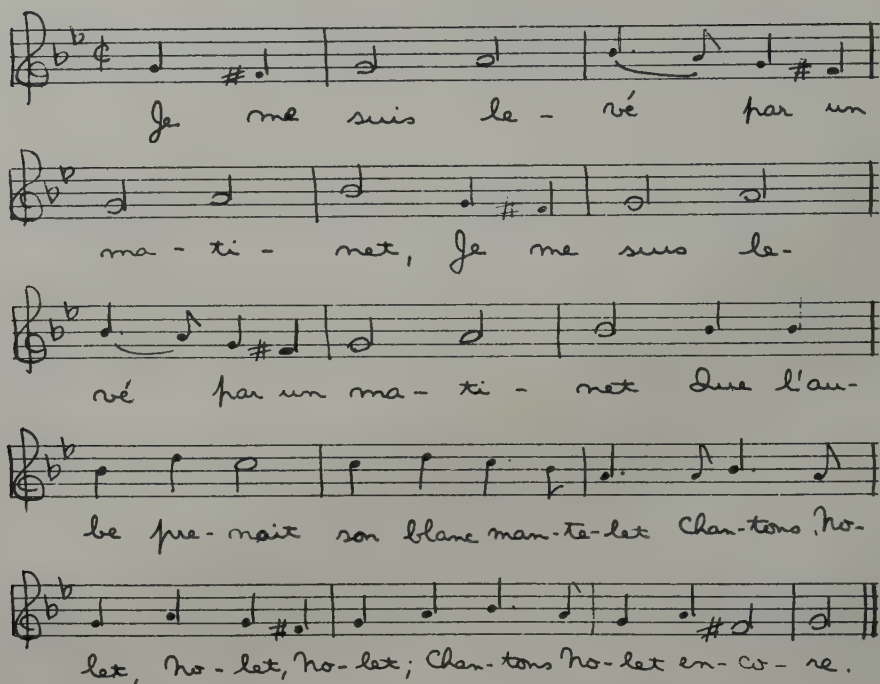 Je me suis le - vé par un
ma - ti - net, Je me suis le-
vé par un ma - ti - net Que l'au-
be pre - nait son blanc man-te-let Chan-tons No-
let, No - let, No - let; Chan-tons No-let en-co - re.